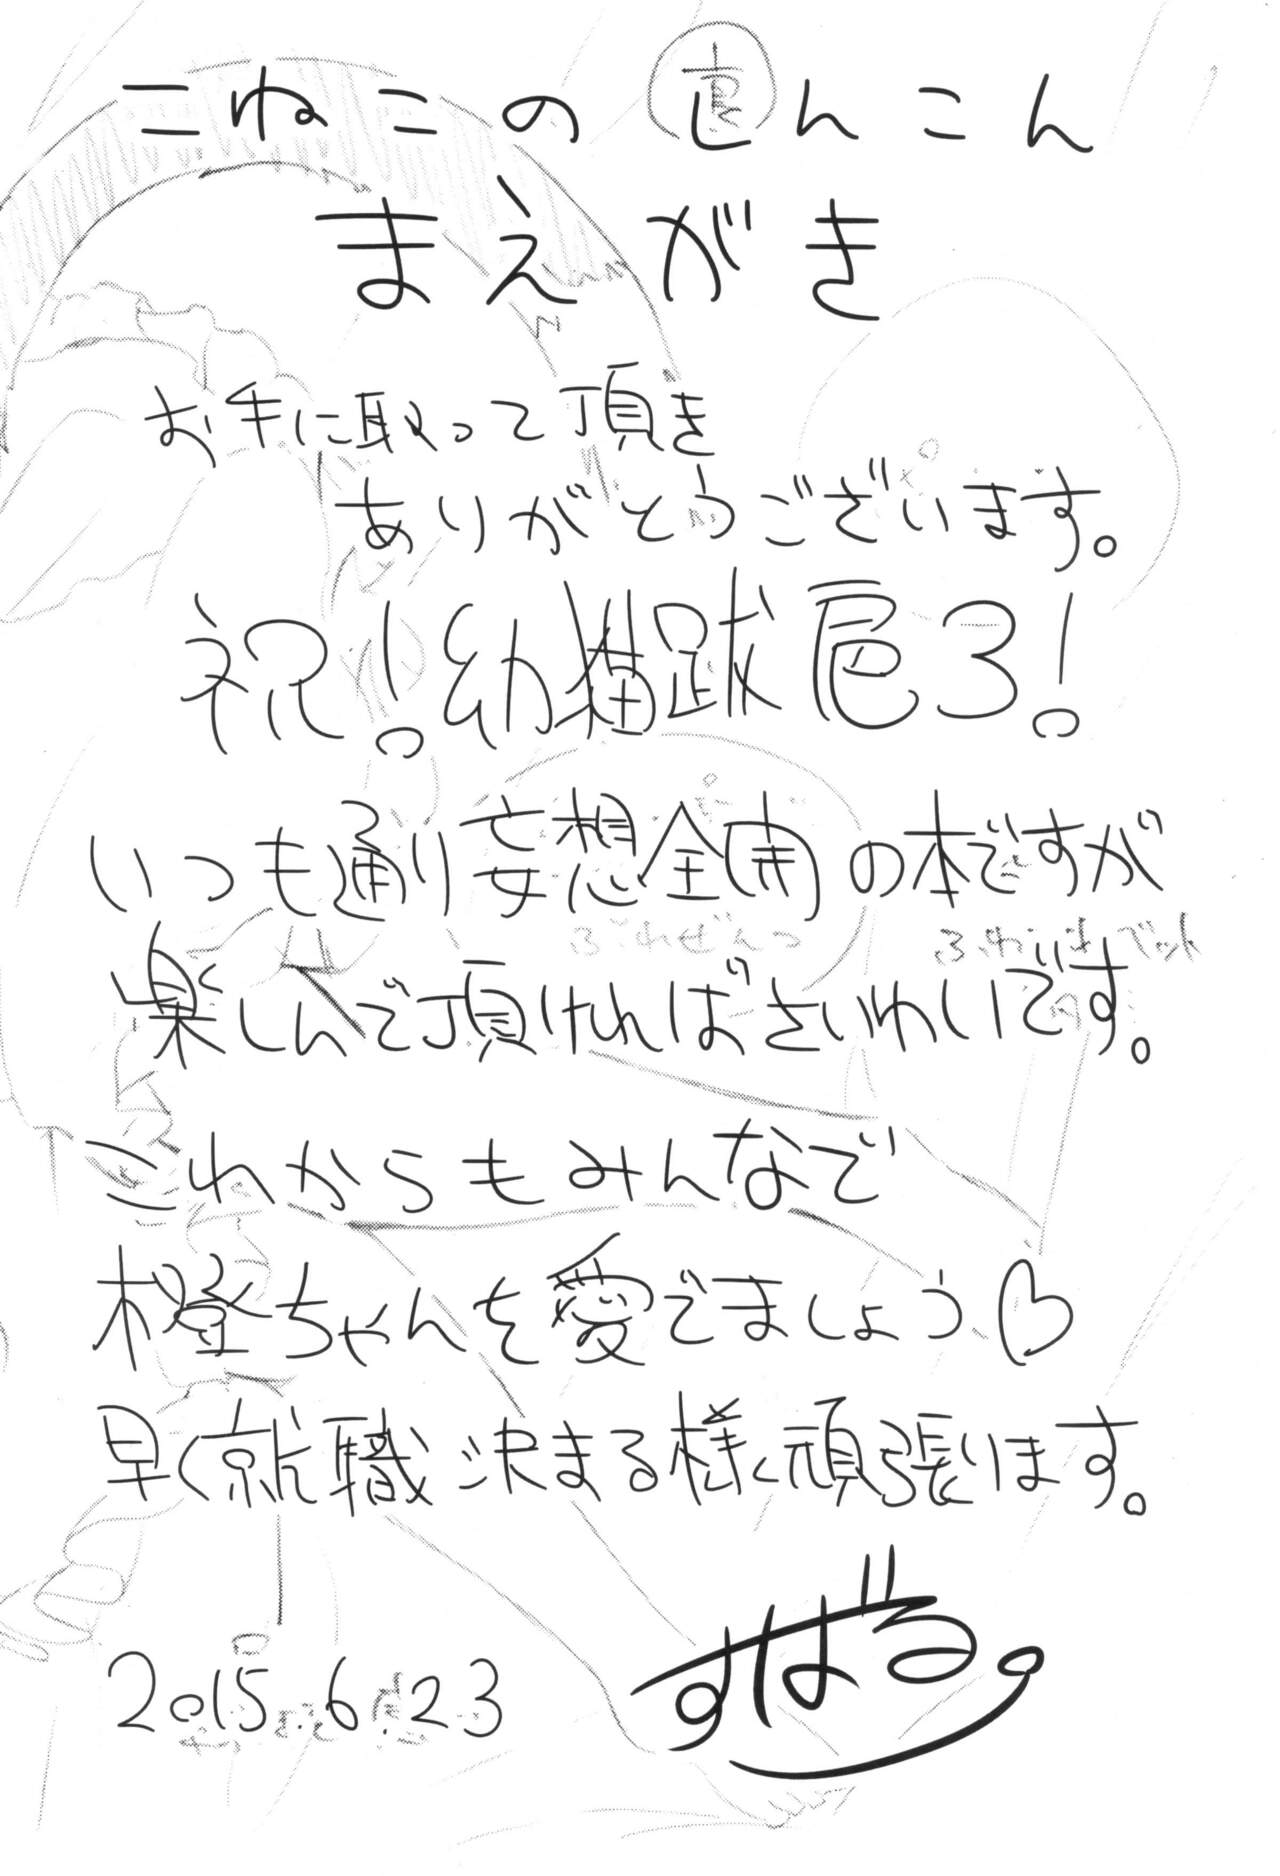 こねこの んこん
まえがき
お手に取って頂き
ありがとうございます。
祝!幼猫跋扈3!
いつも通り妄想全開の本ですが
楽しんで頂ければさいわいです。
これからもみんなで
橙ちゃんを愛でましょう♡
早く就職決まる様に頑張ります。
2015.6.23
すばる。